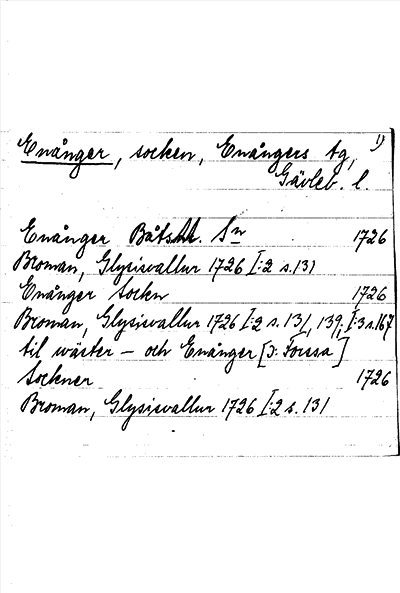 Enånger, socken, Enångers tg, 1)
Gävleb. l.
Enånger Båtsm. Sn 1726
Broman, Glysisvallur 1726 I:2 s. 131
Enånger Sockn 1726
Broman, Glysisvallur 1726 I:2 s. 131, 139; I:3 s. 167
til wäster – och Enånger [J: Forssa]
Sockner 1726
Broman, Glysisvallur 1726 I:2 s. 131